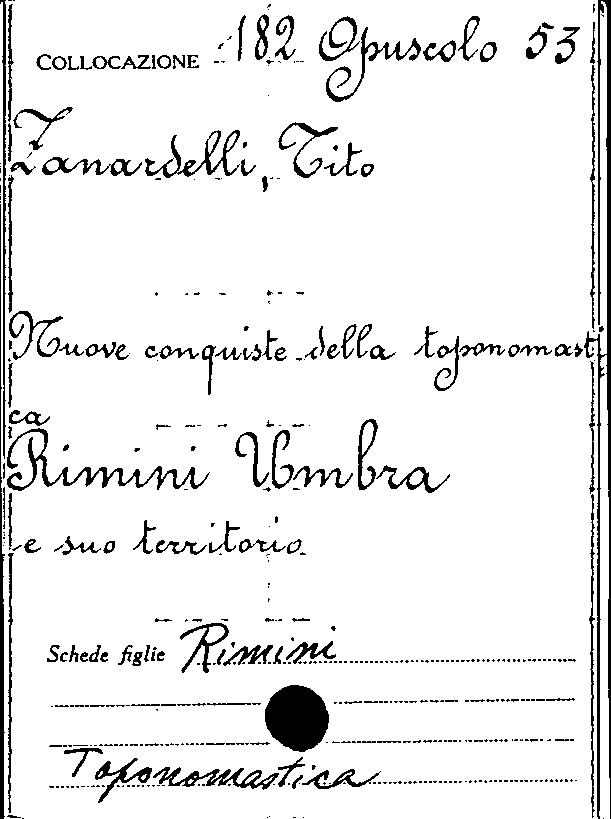 COLLOCAZIONE 182 Opuscolo 53
Zanardelli, Tito
Nuove conquiste della toponomasti
ca
Rimini Umbra
e suo territorio
Schede figlie Rimini
Toponomastica